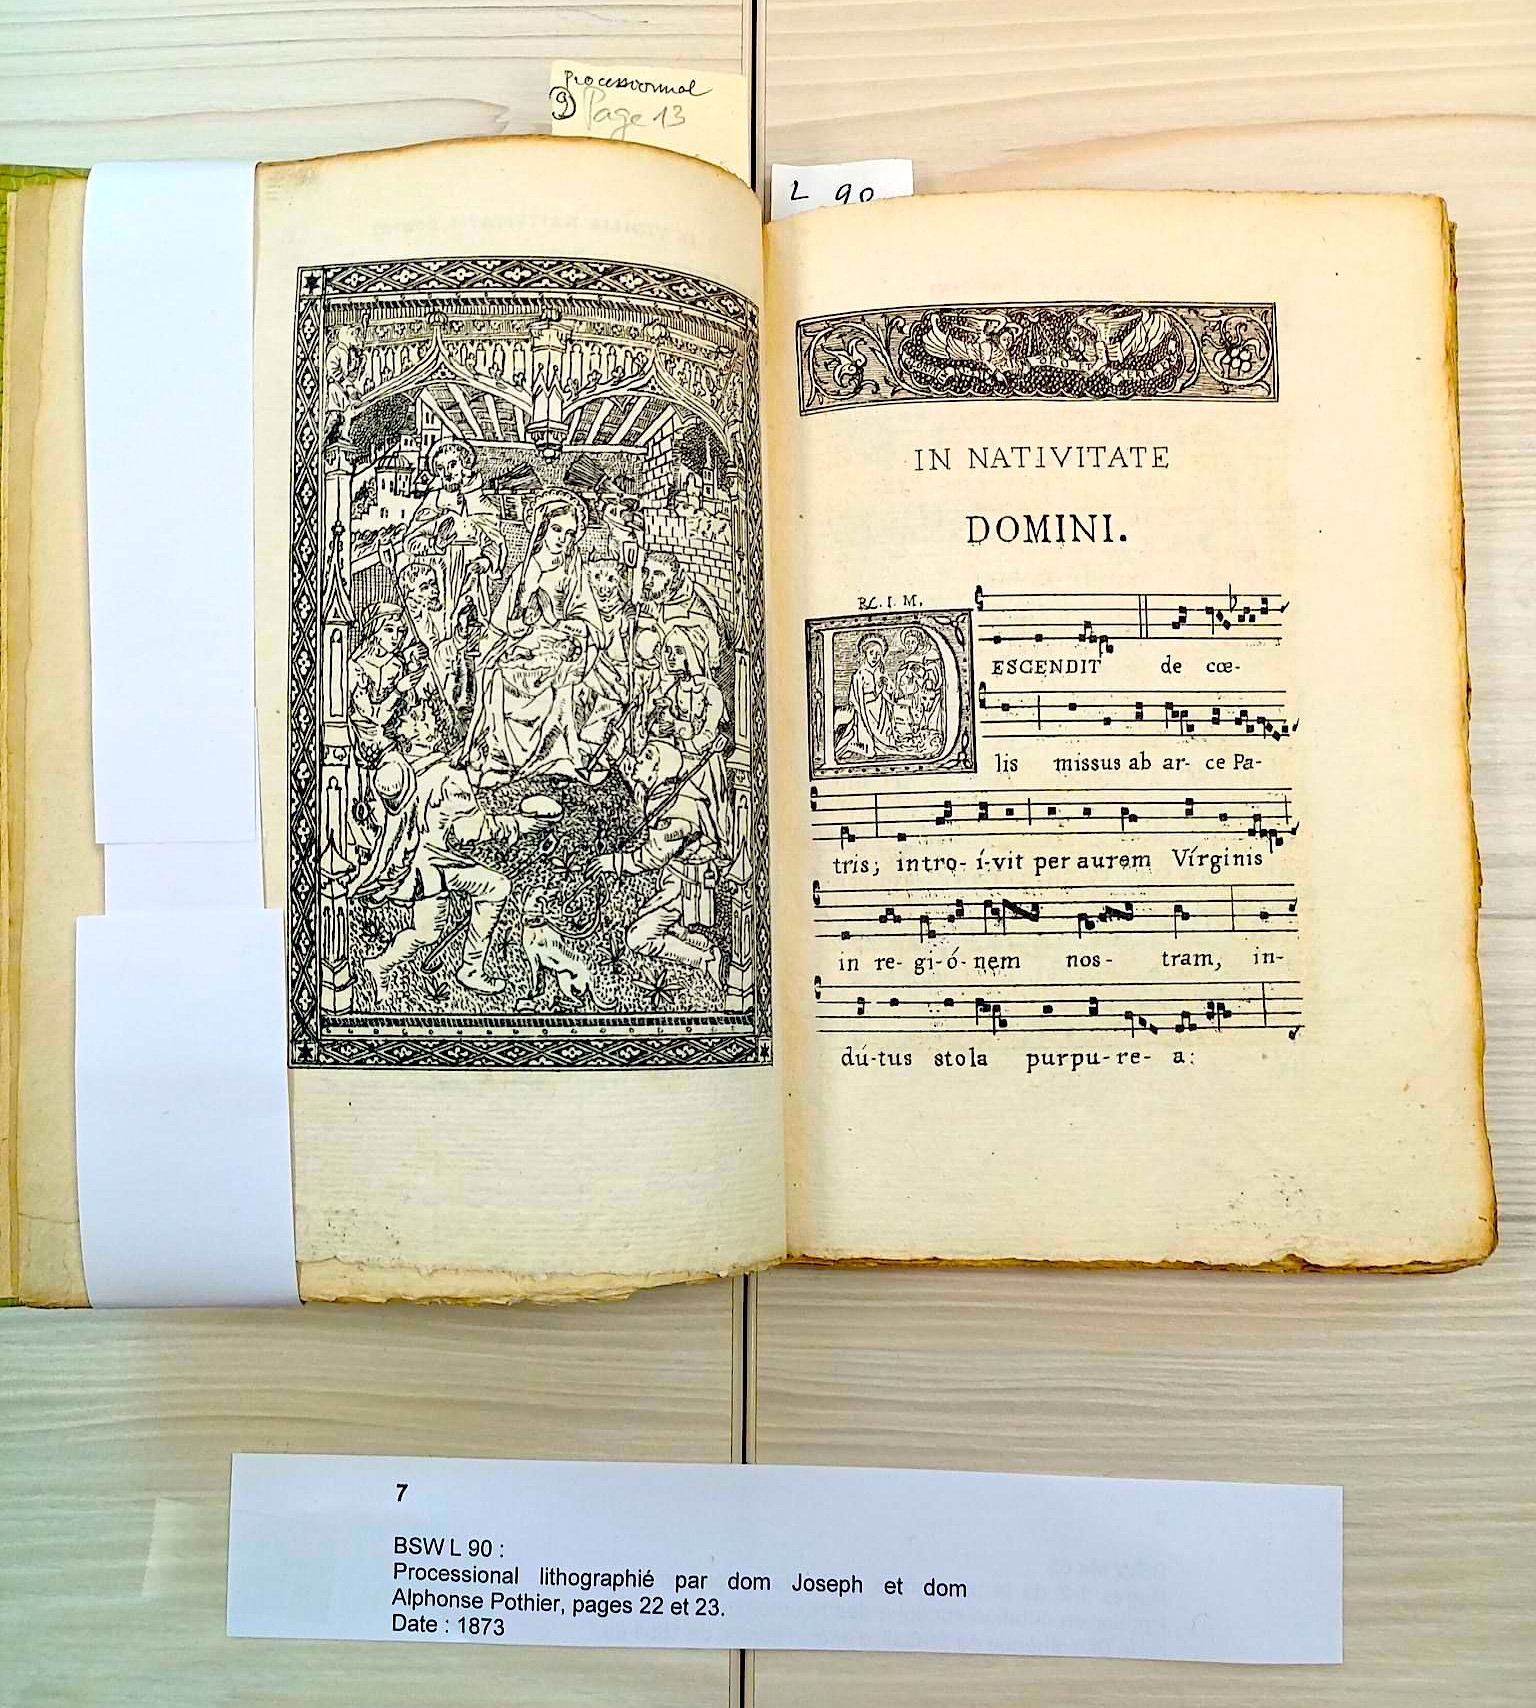 Processionnal
9 Page 13
L 90
IN NATIVITATE
DOMINI.
R. I. M.
DESCENDIT de cœ-
lis missus ab ar- ce Pa-
tris; intro- í-vit per aurem Vírginis
in re- gi-ó- nem nos- tram, in-
dú-tus stola purpu- re- a:
7
BSW L 90 :
Processional lithographié par dom Joseph et dom
Alphonse Pothier, pages 22 et 23.
Date : 1873